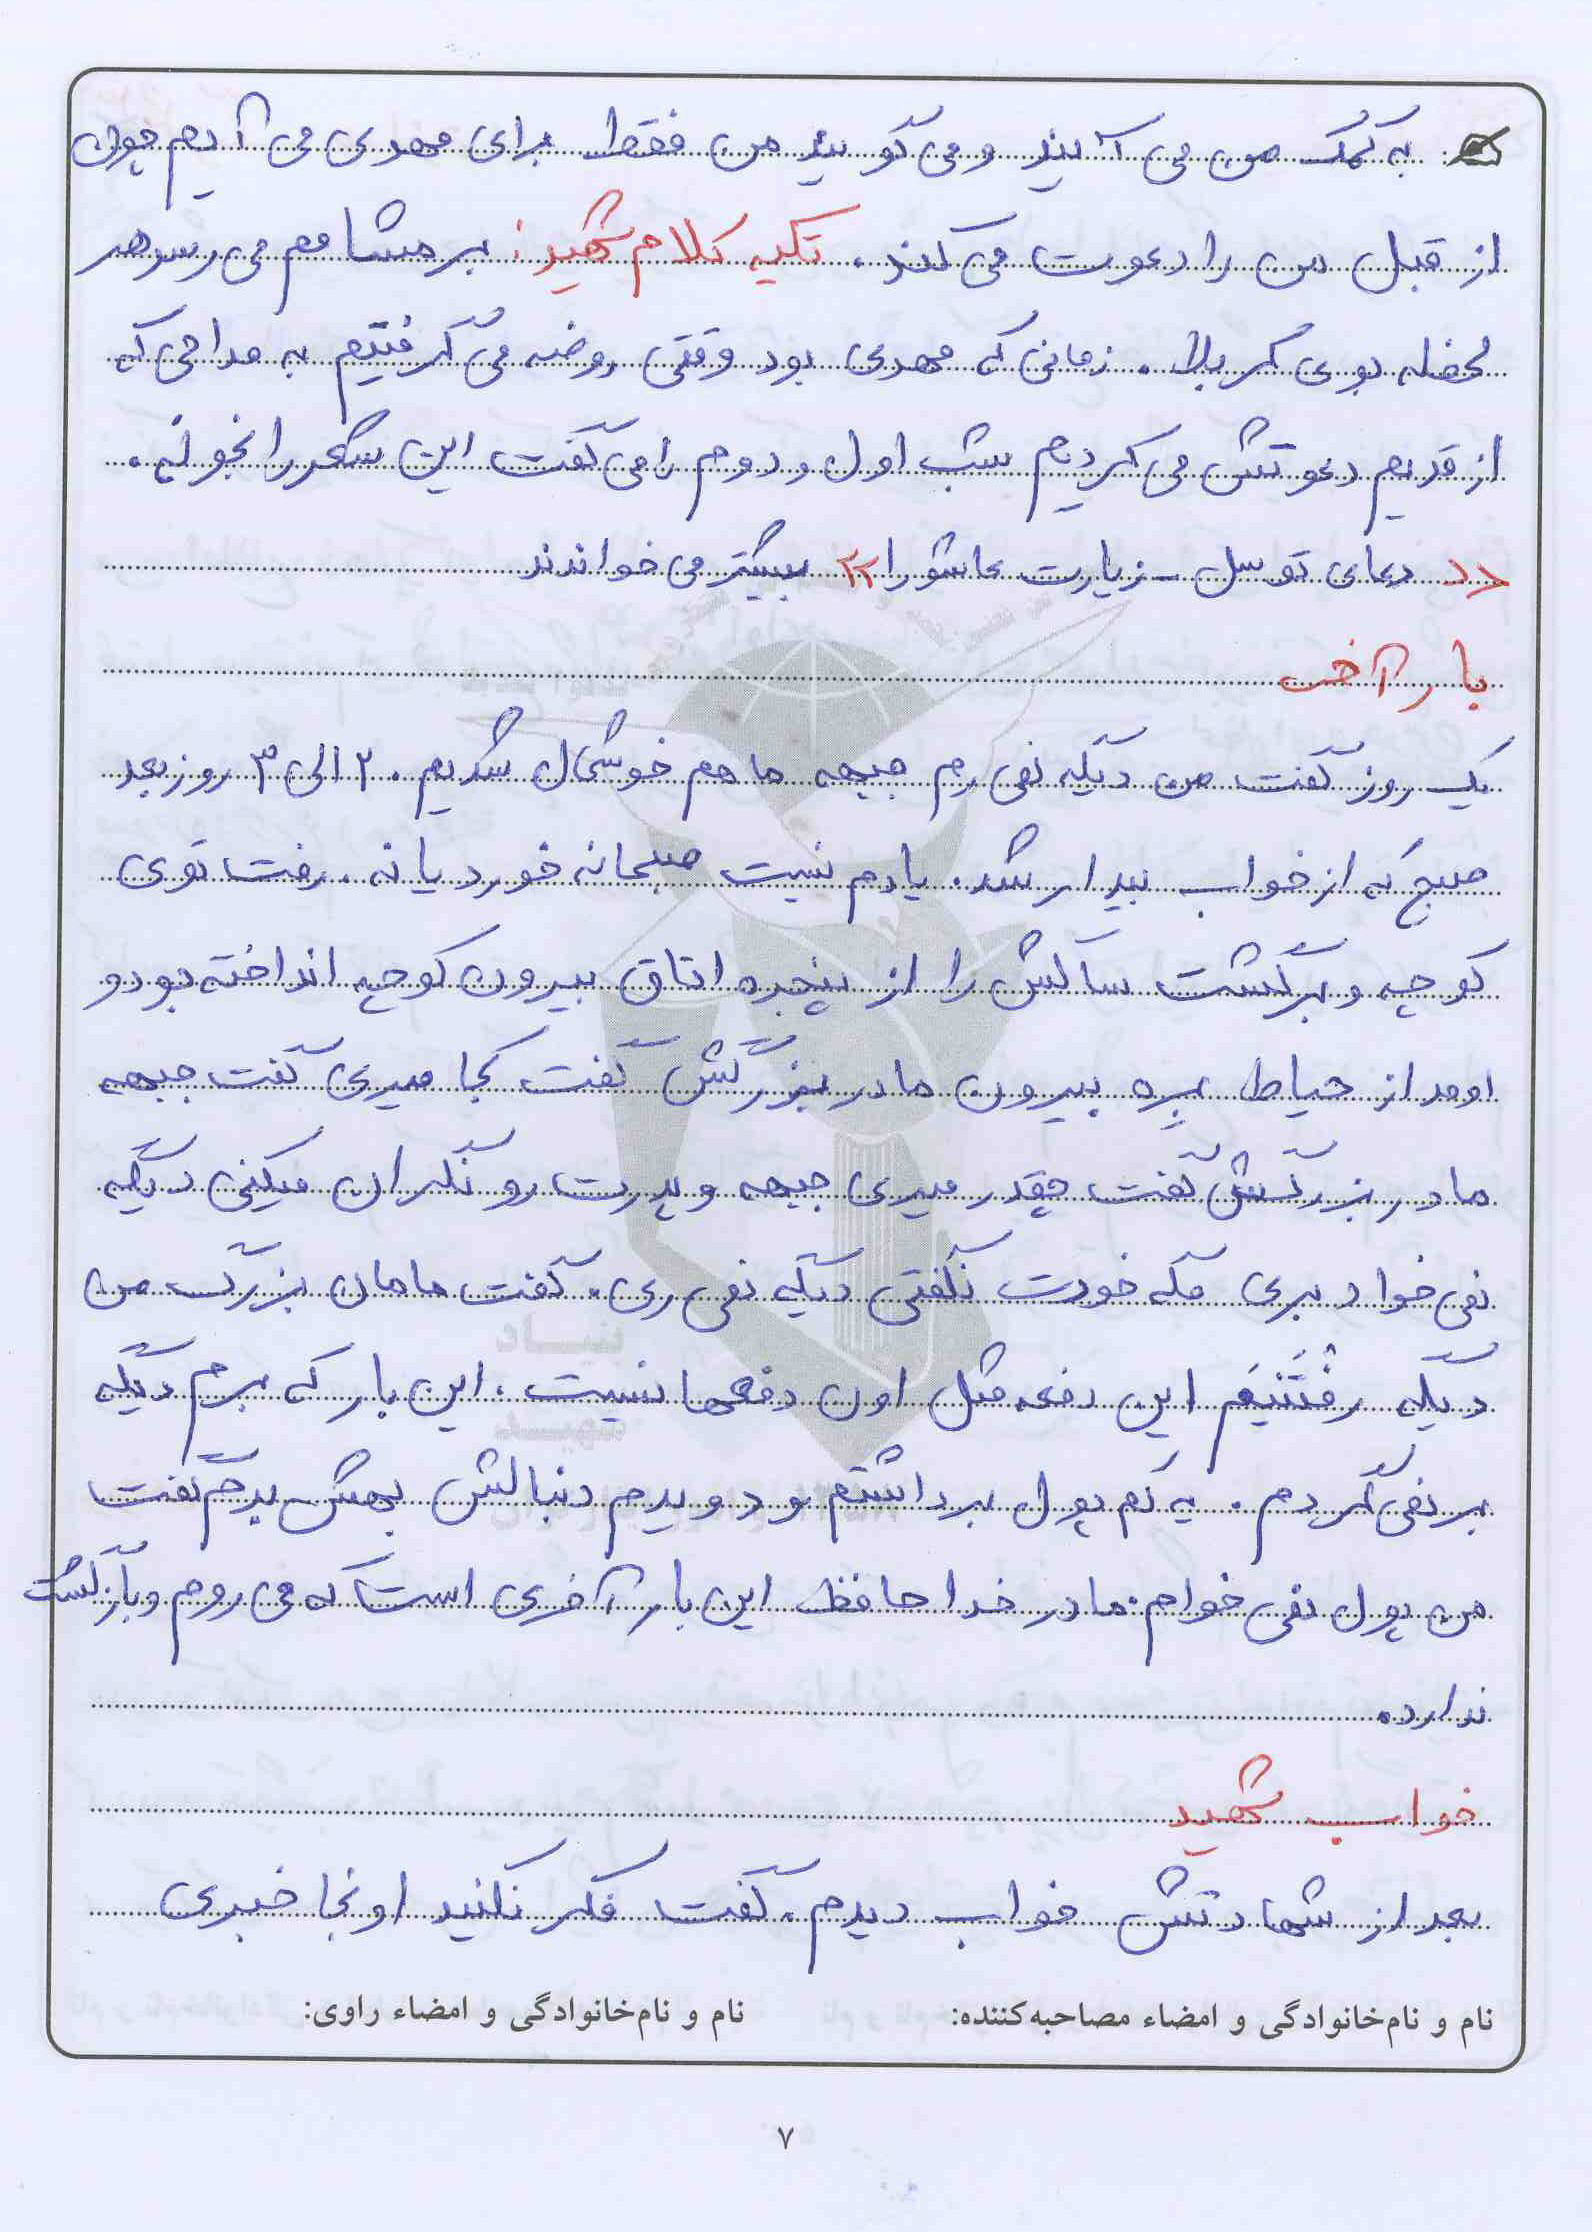 به کمک من می آیند و می گویند من فقط برای مهدی می آیم چون
از قبل من را دعوت می کند. تکیه کلام شهید: بر مشامم می رسد هر
لحظه بوی کربلا. زمانی که مهدی بود وقتی روضه می گرفتیم به مداحی که
از قدیم دعوتش می کردیم شب اول و دوم را می گفت این شعر را بخونه.
<< دعای توسل - زیارت عاشورا >> بیشتر می خواندند
بار آخر
یک روز گفت من دیگه نمی رم جبهه ما هم خوشحال شدیم. ۲ الی ۳ روز بعد
صبح که از خواب بیدار شد. یادم نیست صبحانه خورد یا نه. رفت توی
کوچه و برگشت ساکش را از پنجره اتاق بیرون کوچه انداخته بود و
اومد از حیاط بره بیرون مادربزرگش گفت کجا میری گفت جبهه
مادربزرگش گفت چقدر میری جبهه و پدرت رو نگران میکنی دیگه
نمی خواد بری مگه خودت نگفتی دیگه نمی ری. گفت مامان بزرگ من
دیگه رفتنیم این دفعه مثل اون دفعها نیست. این بار که برم دیگه
بر نمی گردم. یه کم پول برداشتم و دویدم دنبالش بهش بدم گفت
من پول نمی خوام. مادر خداحافظ این بار آخری است که می روم و بازگشت
ندارد.
خواب شهید
بعد از شهادتش خواب دیدم. گفت فکر نکنید اونجا خبری
نام و نام‌خانوادگی و امضاء مصاحبه‌کننده: نام و نام‌خانوادگی و امضاء راوی:
۷